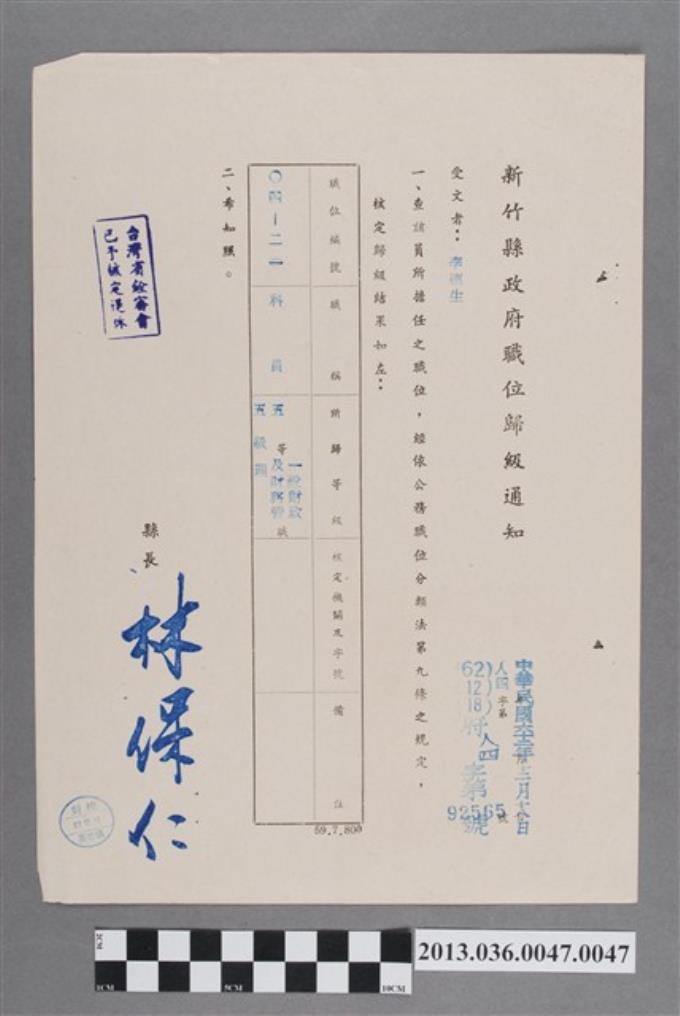 新竹縣政府職位歸級通知
中華民國六十二年十二月十八日
(62)人四字第
12)
18)府人四字第 號
92565號
受文者：李 生
一、查該員所擔任之職位，經依公務職位分類法第九條之規定，
核定歸級結果如左：
職位編號
職稱
所歸等級
核定機關及字號
備註
〇四－二一
科員
五等
一般財政
及財務管 職
五級
59.7.800
二、希知照。
台灣省銓審會
已予核定退休
縣長
林保仁
校對
2013.036.0047.0047
2CM
1CM
5CM
10CM